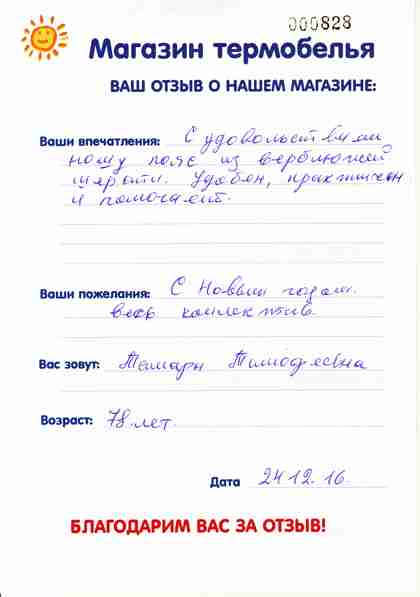 000828
Магазин термобелья
ВАШ ОТЗЫВ О НАШЕМ МАГАЗИНЕ:
Ваши впечатления: С удовольствием
ношу пояс из верблюжей
шерсти. Удобен, практичен
и помогает.
Ваши пожелания: С Новым годом
весь коллектив
Вас зовут: Тимофеевна
Возраст: 78 лет.
Дата 24.12.16.
БЛАГОДАРИМ ВАС ЗА ОТЗЫВ!